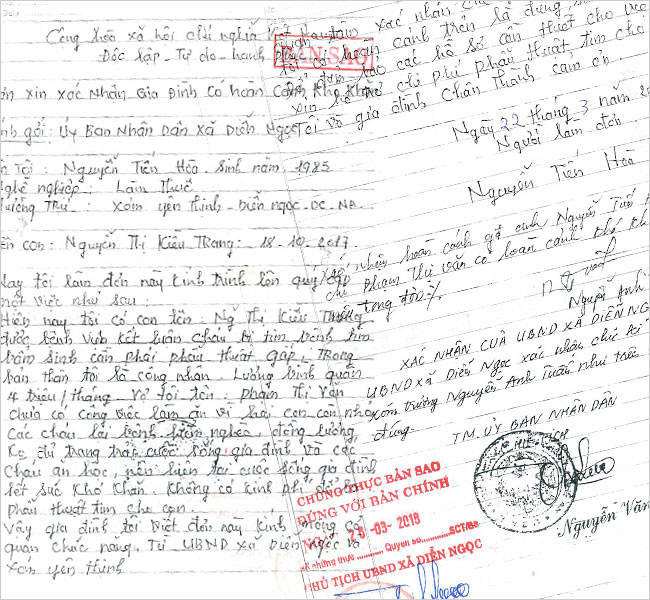 Cộng hòa xã hội chủ nghĩa Việt Nam
Độc lập - Tự do - hạnh phúc
BẢN SAO
ơn xin xác nhận gia đình có hoàn cảnh khó khăn
nh gởi: Ủy Ban Nhân Dân xã Diễn Ngọc
n tôi: Nguyễn Tiến Hòa. Sinh năm, 1985
ghề nghiệp: Làm Thuê
ường Trú: Xóm yên Thịnh - Diễn ngọc - DC - NA
ên con: Nguyễn Thị Kiều Trang: 18-10-2017
Nay tôi làm đơn này kính trình lên quý cấp
một việc như sau:
Hiện nay tôi có con tên: Ng Thị Kiều Trang
được bệnh viện kết luận cháu bị tim bệnh tim
bẩm sinh cần phải phẩu thuật gấp. Trong
bản thân tôi là công nhân. Lương bình quân
4 triệu/tháng. Vợ tôi tên: phạm Thị Vân
chưa có công việc làm ăn vì hai con còn nhỏ
Các cháu lại bệnh hiểm nghèo, đồng lương
Ko đủ trang trải cuộc sống gia đình và các
Cháu ăn học, nên hiện tại cuộc sống gia đình
hết sức khó khăn. Không có kinh phí để
phẩu thuật tim cho con.
Vậy gia đình tôi viết đơn này kính mong cơ
quan chức năng. Từ UBND xã Diễn ngọc và
xóm yên thịnh
xác nhận cho
cảnh trên là đúng,
các hồ sơ cần thiết cho việc
xin hỗ trợ chi phí phẩu thuật tim cho
Tôi và gia đình chân thành cảm ơn.
Ngày 22 tháng 3 năm 20
Người làm đơn
Nguyễn Tiến Hòa
xác nhận hoàn cảnh gđ anh Nguyễn Tiến
chị Phạm Thị Vân có hoàn cảnh khó khăn
trong đời ./.
Nguyễn Anh
XÁC NHẬN CỦA UBND XÃ DIỄN NG
UBND xã Diễn Ngọc xác nhận chữ kí
xóm trưởng Nguyễn Anh Tuấn như trên
đúng.
TM. ỦY BAN NHÂN DÂN
Nguyễn Văn
CHỨNG THỰC BẢN SAO
ĐÚNG VỚI BẢN CHÍNH
-03-2018
Số chứng thực ........... Quyển số ...........SCT/BS
CHỦ TỊCH UBND XÃ DIỄN NGỌC